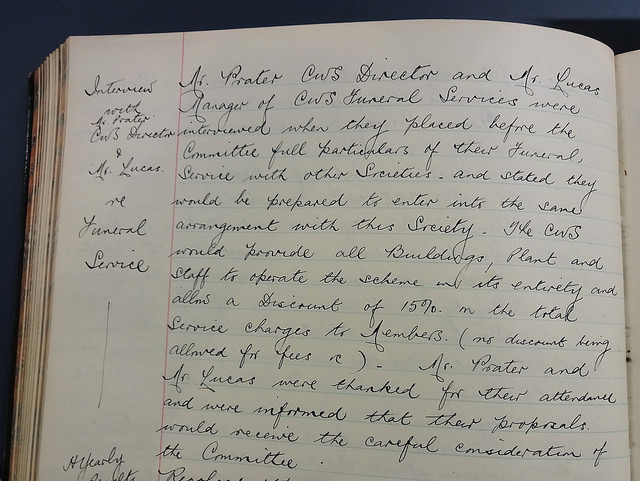 Interview
with
Mr. Prater
CWS Director
&
Mr. Lucas.
re
Funeral
Service
Mr. Prater CWS Director and Mr. Lucas
Manager of CWS Funeral Services were
interviewed when they placed before the
Committee full particulars of their Funeral,
Service with other Societies - and stated they
would be prepared to enter into the same
arrangement with this Society - The CWS
would provide all Buildings, Plant and
Staff to operate the scheme in its entirety and
allow a Discount of 15%. on the total
Service charges to Members. (no discount being
allowed for fees &c) - Mr. Prater and
Mr Lucas were thanked for their attendance
and were informed that their proposals.
would receive the careful consideration of
the Committee.
½ Yearly